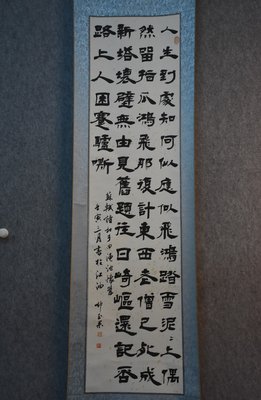 人生到處知何似應似飛鴻踏雪泥〻上偶
然留指爪鴻飛那復計東西老僧已死成
新塔壞壁無由見舊題往日崎嶇還記否
路上人困蹇驢嘶
蘇軾詩和子由澠池懷舊
壬寅二月書於江油